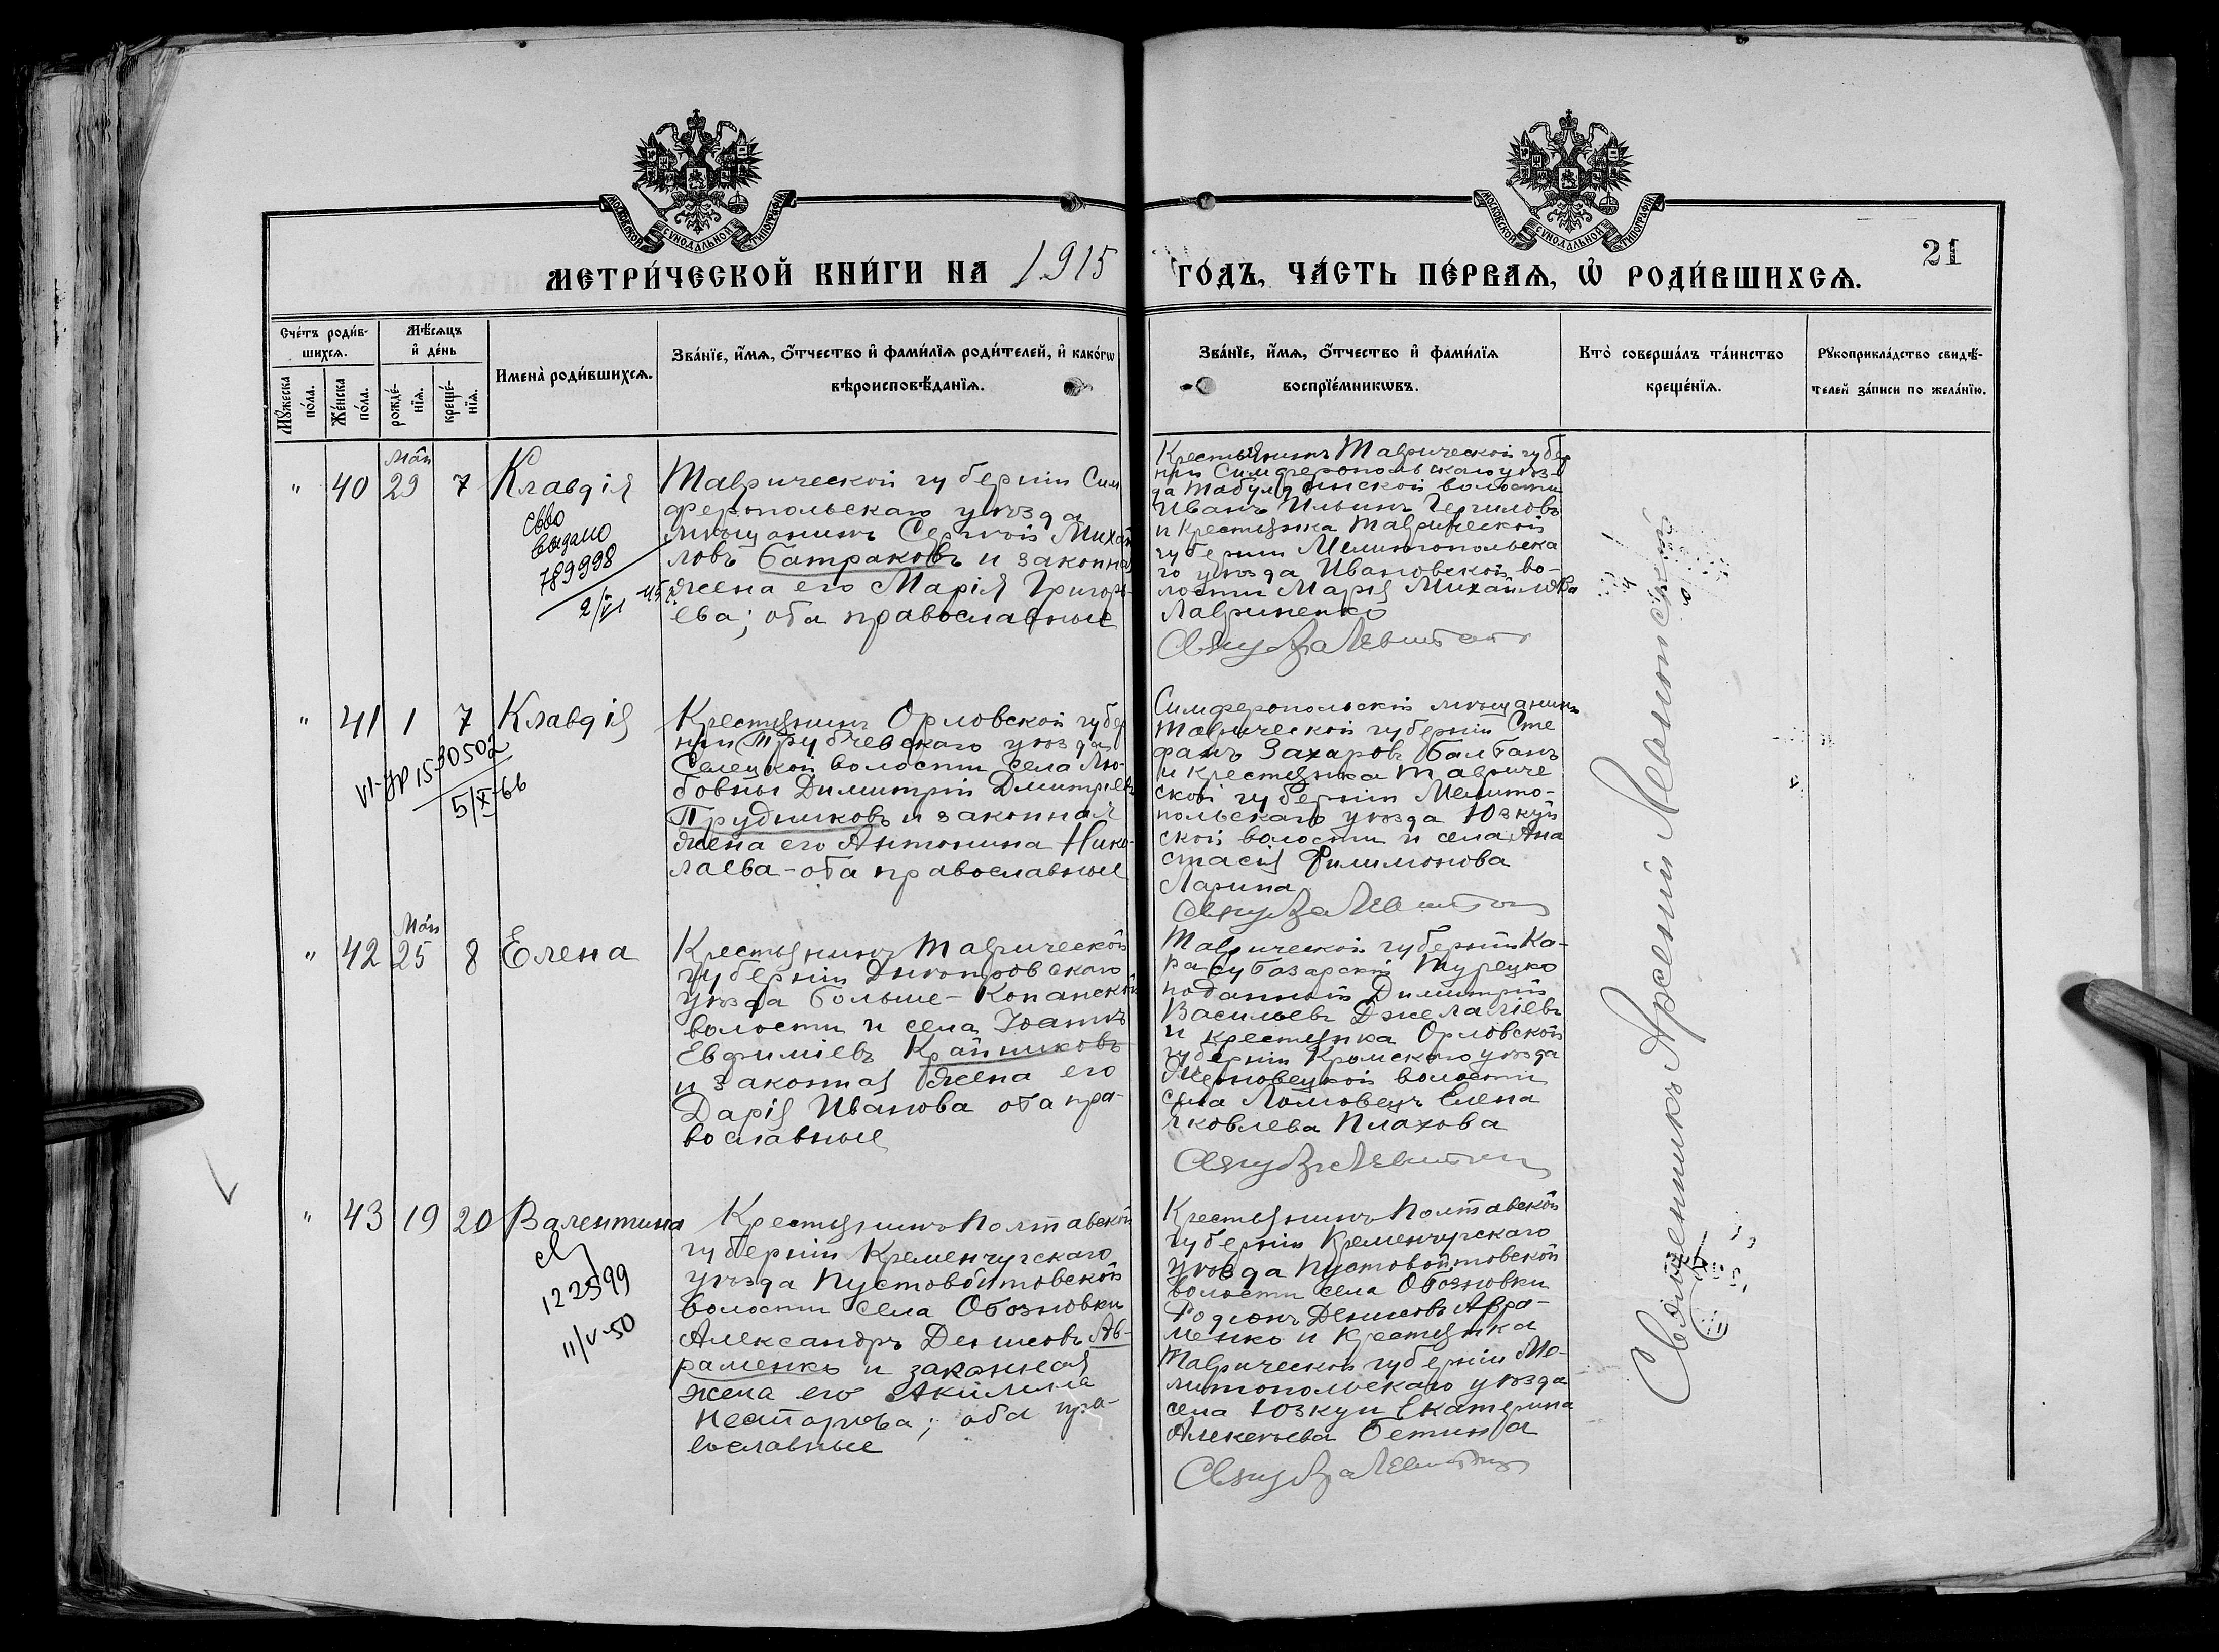 МОСКОВСКОЙ СѴНОДАЛЬНОЙ ТИПОГРАФІИ
МОСКОВСКОЙ СѴНОДАЛЬНОЙ ТИПОГРАФІИ
21
МЕТРИ́ЧЕСКОЙ КНИ́ГИ НА 1915 ГО́ДЪ, ЧА́СТЬ ПЕ́РВАѦ, Ѡ҆ РОДИ́ВШИХСѦ.
Сче́тъ роди́в-
шихсѧ.
Мѣ́сѧцъ
и҆ де́нь
Мꙋ́жеска
по́ла.
Же́нска
по́ла.
рожде́-
нїѧ.
креще́-
нїѧ.
Имена̀ роди́вшихсѧ.
Зва́нїе, и҆́мѧ, ѻ҆́тчество и҆ фами́лїѧ роди́телей, и҆ како́гѡ
вѣроисповѣ́данїѧ.
Зва́нїе, и҆́мѧ, ѻ҆́тчество и҆ фами́лїѧ
воспрїе́мникѡвъ.
Кто̀ соверша́лъ та́инство
креще́нїѧ.
Рꙋкоприкла́дство свидѣ́-
телей за́писи по жела́нїю.
"
40
Мая
29
7
Клавдія
Св-во
выдано
789998
2/VI 45 г.
Таврической губерніи Сим
феропольскаго уѣзда
мѣщанинъ Сергѣй Михай
ловъ Батраковъ и законная
жена его Марія Григорь-
ева; оба православные
Крестьянинъ Таврической губер
ніи Симферопольскаго уѣз-
да Табулдинской волости
Иванъ Ильинъ
и крестьянка Таврической
губерніи Мелитопольска
го уѣзда Ивановской во-
лости Марія Михайлова
Лавриненко
"
41
1
7
Клавдія
VI-УР 1530502
5/X-66
Крестьянинъ Орловской губер
ніи Трубчевскаго уѣзда
Селецкой волости села Лю-
бовны Димитрій Дмитріевъ
Прудниковъ и законная
жена его Антонина Нико-
лаева - оба православные
Симферопольскій мѣщанинъ
Таврической губерніи Сте
фанъ Захаровъ Балбанъ
и крестьянка Тавриче
ской губерніи Мелито-
польскаго уѣзда Юзкуй
ской волости и села Ана
стасія Филимонова
Ларина
"
42
Мая
25
8
Елена
Крестьянинъ Таврической
губерніи Днѣпровскаго
уѣзда Больше-Копанской
волости и села Іоаннъ
Евфиміевъ Крайниковъ
и законная жена его
Дарія Иванова оба пра-
вославные
Таврической губерніи Ка-
расубазарскій Турецко
поданный Димитрій
Васильевъ Джелалиевъ
и крестьянка Орловской
губерніи Кромскаго уѣзда
волости
села Ломовецъ Елена
Яковлева Плахова
"
43
19
20
Валентина
св
122599
11/V-50
Крестьянинъ Полтавской
губерніи Кременчугскаго
уѣзда Пустовойтовской
волости села Обозновки
Александръ Денисовъ Ав-
раменко и законная
жена его Акилина
Несторова; оба пра-
вославные
Крестьянинъ Полтавской
губерніи Кременчугскаго
уѣзда Пустовойтовской
волости села Обозновки
Родіонъ Денисовъ Авра-
менко и крестьянка
Таврической губерніи Ме-
литопольскаго уѣзда
села Юзкуи Екатерина
Алексѣева Бетина
Священникъ Арсеній Левитскій